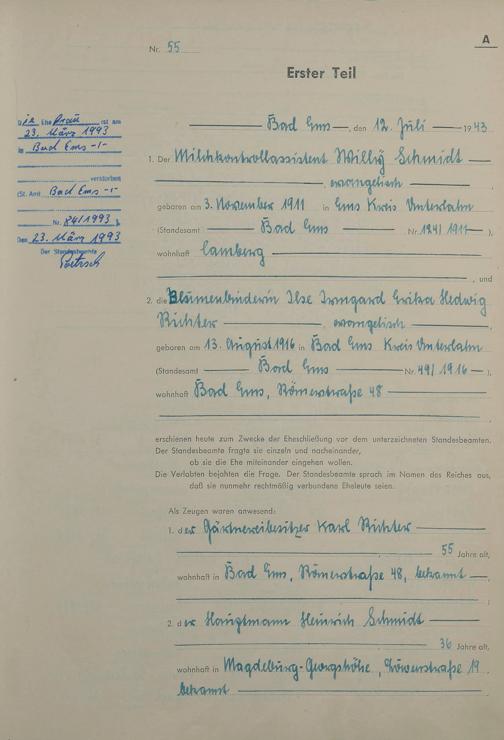 A
Nr. 55
Erster Teil
Die Ehefrau ist am
23. März 1993
in Bad Ems -/-
verstorben
(St. Amt Bad Ems -/-
Nr. 84/1993 ).
Den 23. März 1993
Der Standesbeamte
Bad Ems, den 12. Juli 1943
1. Der Milchkontrollassistent Willy Schmidt
, evangelisch
geboren am 3. November 1911 in Ems Kreis Unterlahn
(Standesamt Bad Ems Nr. 124/1911 ),
wohnhaft Camberg
, und
2. die Blumenbinderin Ilse Irmgard Erika Hedwig
Richter , evangelisch
geboren am 13. August 1916 in Bad Ems Kreis Unterlahn
(Standesamt Bad Ems Nr. 49/1916 ),
wohnhaft Bad Ems, Römerstraße 48
erschienen heute zum Zwecke der Eheschließung vor dem unterzeichneten Standesbeamten.
Der Standesbeamte fragte sie einzeln und nacheinander,
ob sie die Ehe miteinander eingehen wollen.
Die Verlobten bejahten die Frage. Der Standesbeamte sprach im Namen des Reiches aus,
daß sie nunmehr rechtmäßig verbundene Eheleute seien.
Als Zeugen waren anwesend:
1. der Gärtnereibesitzer Karl Richter
55 Jahre alt,
wohnhaft in Bad Ems, Römerstraße 48, bekannt
;
2. der Hauptmann Heinrich Schmidt
36 Jahre alt,
wohnhaft in Magdeburg-Georgshöhe, Löwerstraße 19
bekannt